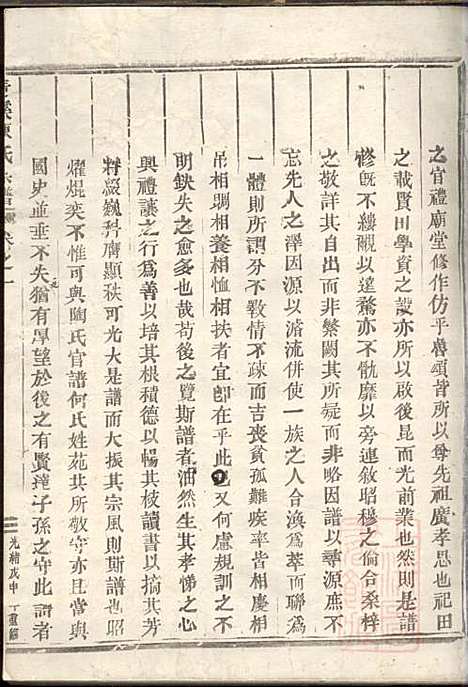 之官禮廟堂修作仿乎魯頌皆所以尊先祖廣孝思也祀田
之載賢田學資之設亦所以啟後昆而光前業也然不
修旣不縷覼以遠騖亦不骩靡以旁連敘昭穆之倫合桑梓
之敬詳其自出而非繁闕其所疑而非略因譜以尋源庶不
忘先人之澤因源以濬流併使一族之人合渙爲萃而聯爲
一體則所謂分不斁情不疎而吉喪貧孤難疾率皆相慶相
弔相賙相養相恤相扶者宜卽在乎此也又何慮規訓之不
明鈌失之愈多也哉苟後之覽斯譜者油然生其孝悌之心
興禮讓之行爲善以培其根積德以暢其枝讀書以摛其
將綴巍科膺顯秩可光大是譜而大振其宗風則斯譜也昭
燿焜奕不惟可與陶氏官譜何氏姓苑其所敬守亦且當與
國史並垂不失猶有厚望於後之有賢達子孫之守此譜者
陳氏宗譜 卷之一
光緒戊申 重鐫